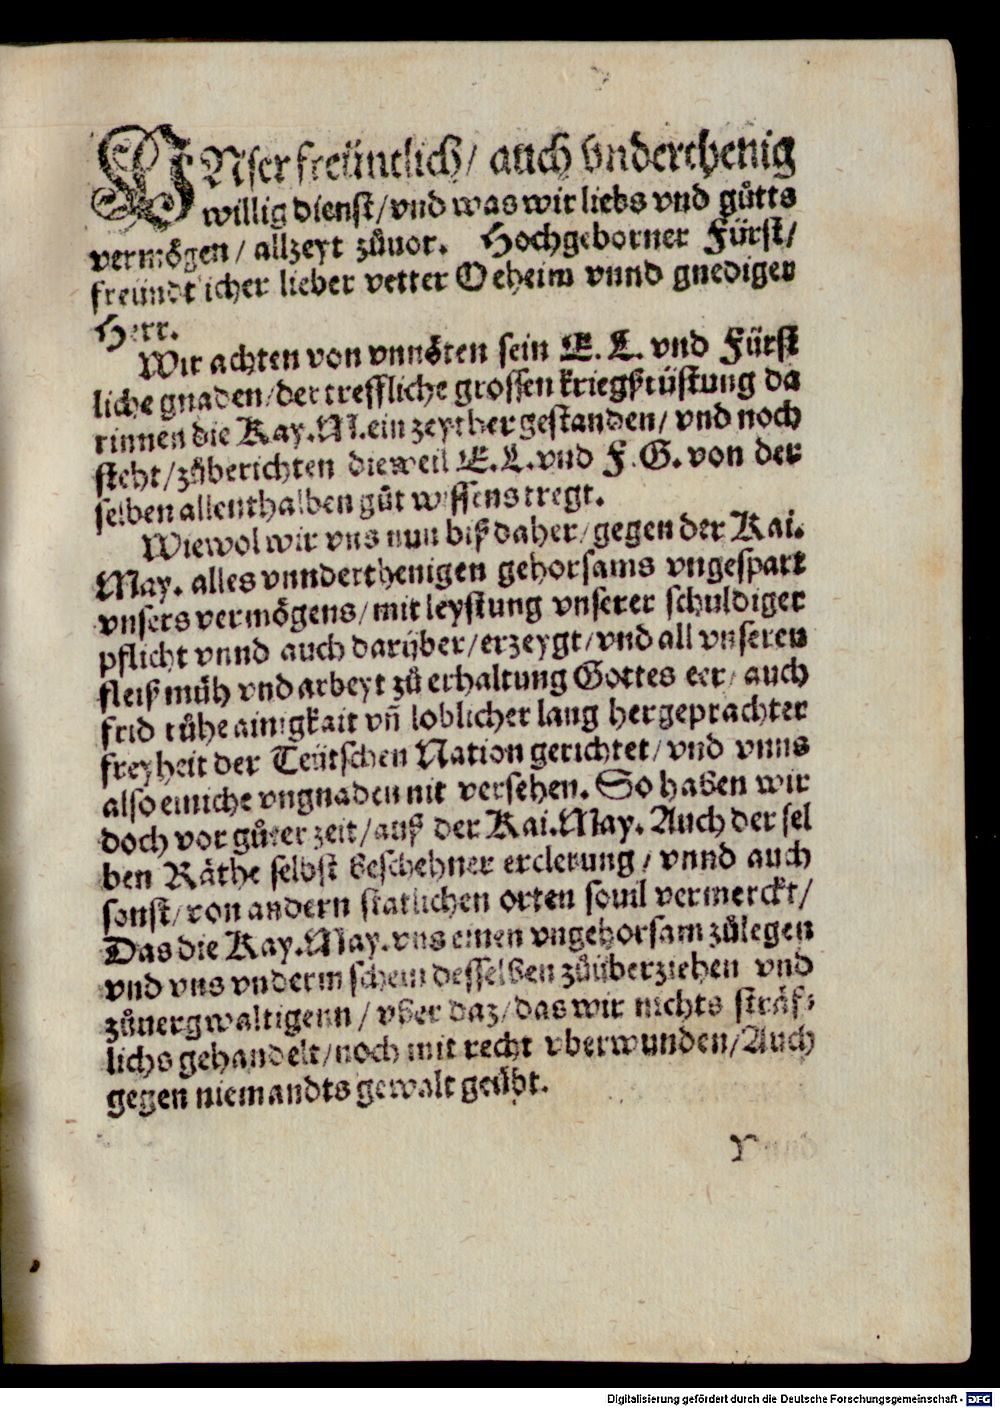 VNser freüntlich/ auch vnderthenig
willig dienst/vnd was wir liebs vnd gůtts
vermögen/ allzeyt zůuor. Hochgeborner Fürst/
freündtlicher lieber vetter Oeheim vnnd gnediger
Herr.
Wir achten von vnnöten sein E. L. vnd Fürst
liche gnaden/der treffliche grossen kriegßrüstung da
rinnen die Kay.M.ein zeyther gestanden/ vnd noch
steht/zůberichten dieweil E.L.vnd F.G.von der
selben allenthalben gůt wissens tregt.
Wiewol wir vns nun biß daher/gegen der Kai.
May. alles vnnderthenigen gehorsams vngespart
vnsers vermögens/mit leystung vnserer schuldiger
pflicht vnnd auch darüber/erzeygt/vnd all vnseren
fleiß müh vnd arbeyt zů erhaltung Gottes eer/ auch
frid růhe ainigkait vñ loblicher lang hergeprachter
freyheit der Teütschen Nation gerichtet/vnd vnns
also einiche vngnaden nit versehen. So haben wir
doch vor gůter zeit/auß der Kai.May. Auch der sel
ben Räthe selbst beschehner erclerung/vnnd auch
sonst/von andern statlichen orten souil vermerckt/
Das die Kay.May.vns einen vngehorsam zůlegen
vnd vns vnderm schein desselben zůüberziehen vnd
zůuergwaltigenn/ vber daz/das wir nichts sträf⸗
lichs gehandelt/noch mit recht vberwunden/Auch
gegen niemandts gewalt geübt.
Digitalisierung gefördert durch die Deutsche Forschungsgemeinschaft - DFG